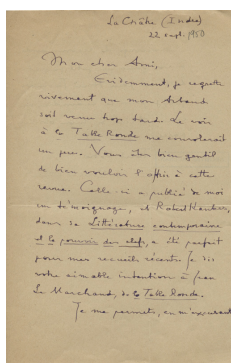 La Châtre (Indre)
22 sept. 1950
Mon cher Ami,
Evidemment, je regrette
vivement que mon
soit venu trop tard. Le voir
à la Table Ronde me consolerait
un peu. Vous êtes bien gentil
de bien vouloir l'offrir à cette
revue. Celle-ci a publié de moi
un témoignage, et Robert Kanters,
dans sa Littérature contemporaine
et le pouvoir des clefs, a été parfait
pour mes recueils récents. Je dis
votre aimable intention à Jean
Le Marchand, de la Table Ronde.
Je me permets, en m'excusant